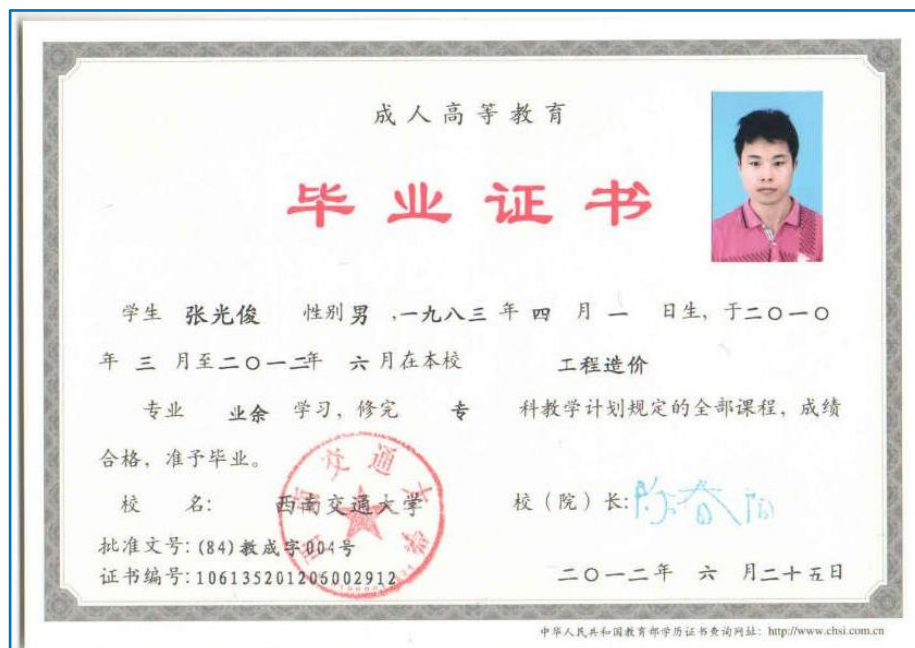 成人高等教育
毕业证书
学生 张光俊 性别 男 ,一九八三 年 四 月 一 日生, 于二〇一〇
年 三 月至二〇一二年 六 月在本校 工程造价
专业 业余 学习, 修完 专 科教学计划规定的全部课程, 成绩
合格, 准予毕业。
校 名: 西南交通大学 校(院)长:
批准文号: (84)教成字004号
证书编号: 106135201206002912 二〇一二年 六 月二十五日
西南交通大学
中华人民共和国教育部学历证书查询网址: http://www.chsi.com.cn